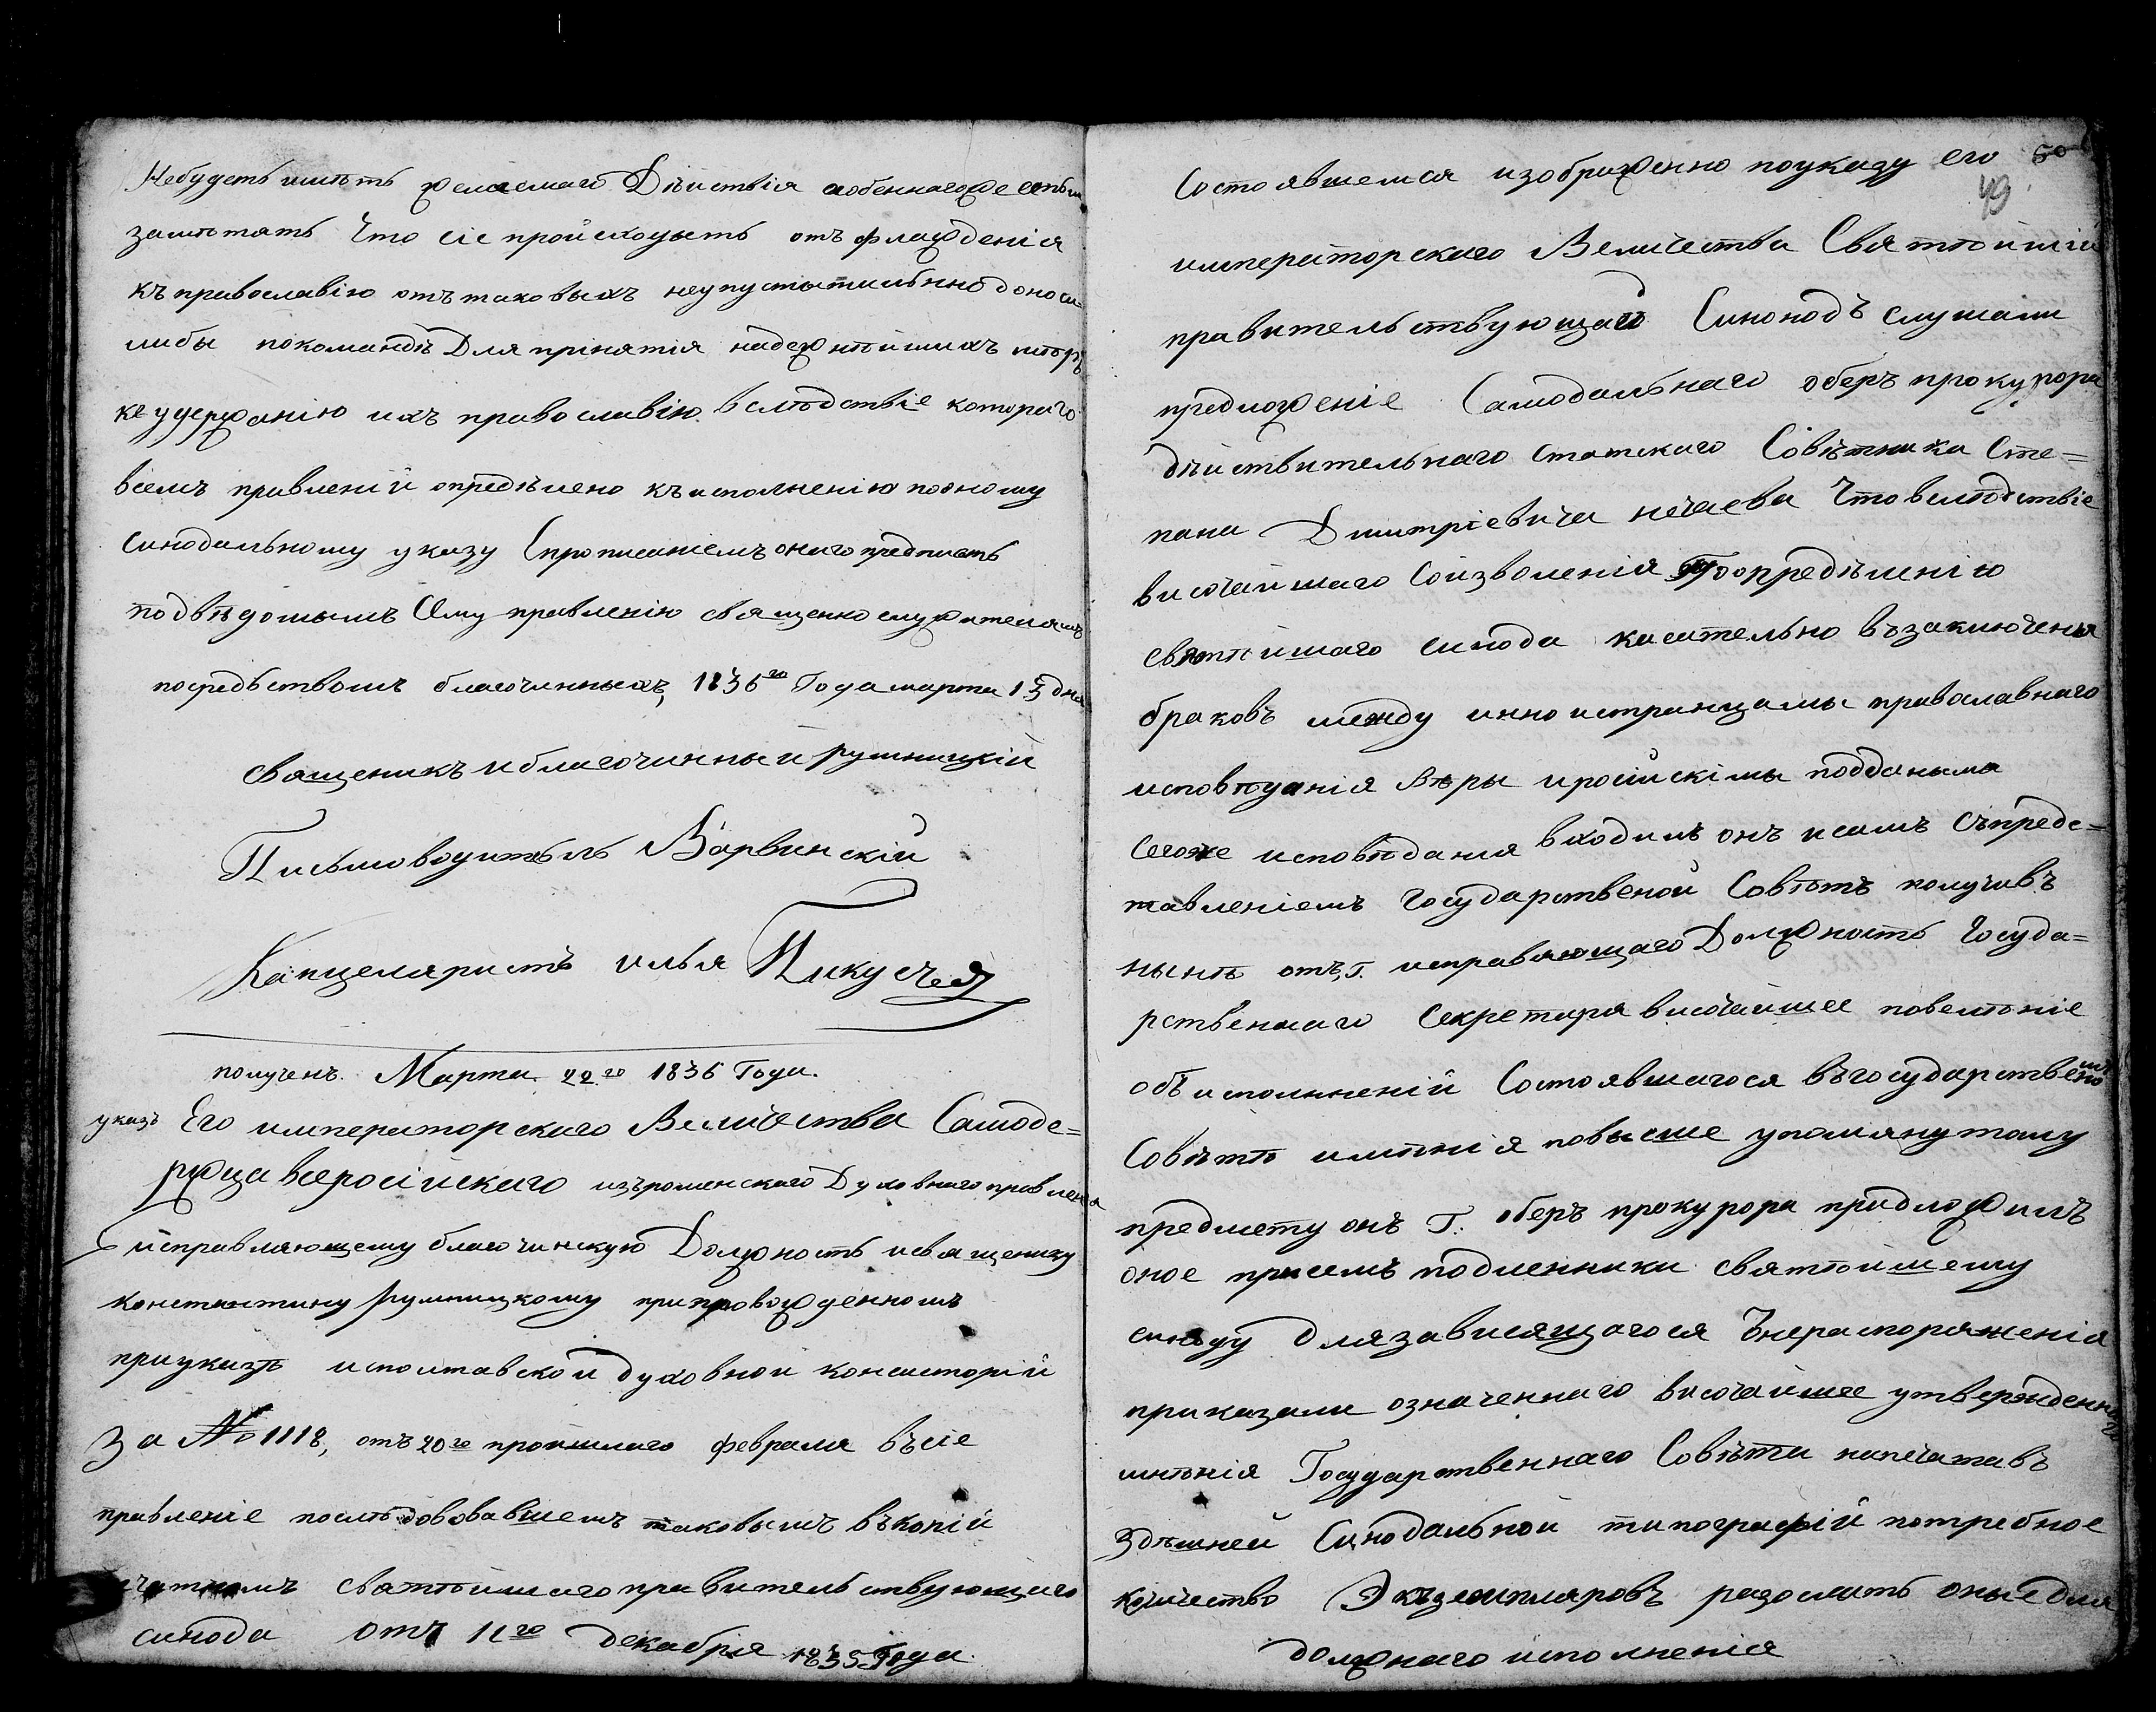 Небудеть имѣть желаемаго Дѣиствія аобеннагоже естьли
замѣтять Что сіе пройсходыть отъ флажденія
къ православію отътаковыхъ неупустытильнно доноси-
либы покомандѣ Для прінятія надежнѣишихъ мѣръ
ке удержанію ихъ православію вслѣдствіе котораго
всемъ правленіи опредѣлено къисполненію поономy
Синодальному указу Спрописаніемъ онаго предписать
подвѣдомымъ Сему правленію священнослужителямъ
посредьствомъ благочинныхъ, 1836го Года марта 13 дня
священикъ иблагочинный румницкій
Письмоводитель Варвинскій
Канцеляристъ илья Пикусчея
полученъ. Марта 22го 1836 Года.
указъ Его императорского Величества Самоде=
ржца всеросіискаго изъроменского Духовного правленія
исправляющему благочинскую Должность исвященику
константину румницкому припровожденномъ
приуказѣ исполтавской духовной консисторіи
За № 1118, отъ 20го пройшлаго февраля въсіе
правленіе послѣдововавшемъ таковымъ въкопіи
святѣйшаго правительствующаго
синода отъ 11го декабря 1835 Года.
50
49
Состоявшемся изображенно поуказу его
императорскаго Величества Святѣйшій
правительствующаго Сионодъ слушали
предложеніе Самодальнаго оберъ прокурора
дѣйствительнаго статскаго Совѣтника Сте=
пана Дмитріевича нечаева Что вслѣдствіе
височайшаго Соизволенія Поопредѣленію
святѣйшаго синода касательно възаключеныя
браковъ между инноистранцамы православнаго
исповѣданія вѣры иросійскімы поддаными
Сегоже исповѣданія входилъ онъ исамъ съпредс=
тавленіемъ Государственой Совѣтъ получивъ
нынѣ отъ г. исправляющаго Должность Госуда=
рственнаго Секретаря височайшее повелѣніе
объисполнненіи Состоявшагося въгосударственомъ
Совѣтѣ имѣнія повысше упомянутому
предмету онъ Г. оберъ прокурора придложилъ
оное присемъ подленники святѣйшему
синоду длязависящагося Ънераспоряженія
приказали означеннаго височайшее утвержденнаго
мнѣнія Государственнаго Совѣта напечатавъ
Здѣшней Синодальной типографій потребное
количество Экъземпляровъ разослать оные для
должнаго исполненія